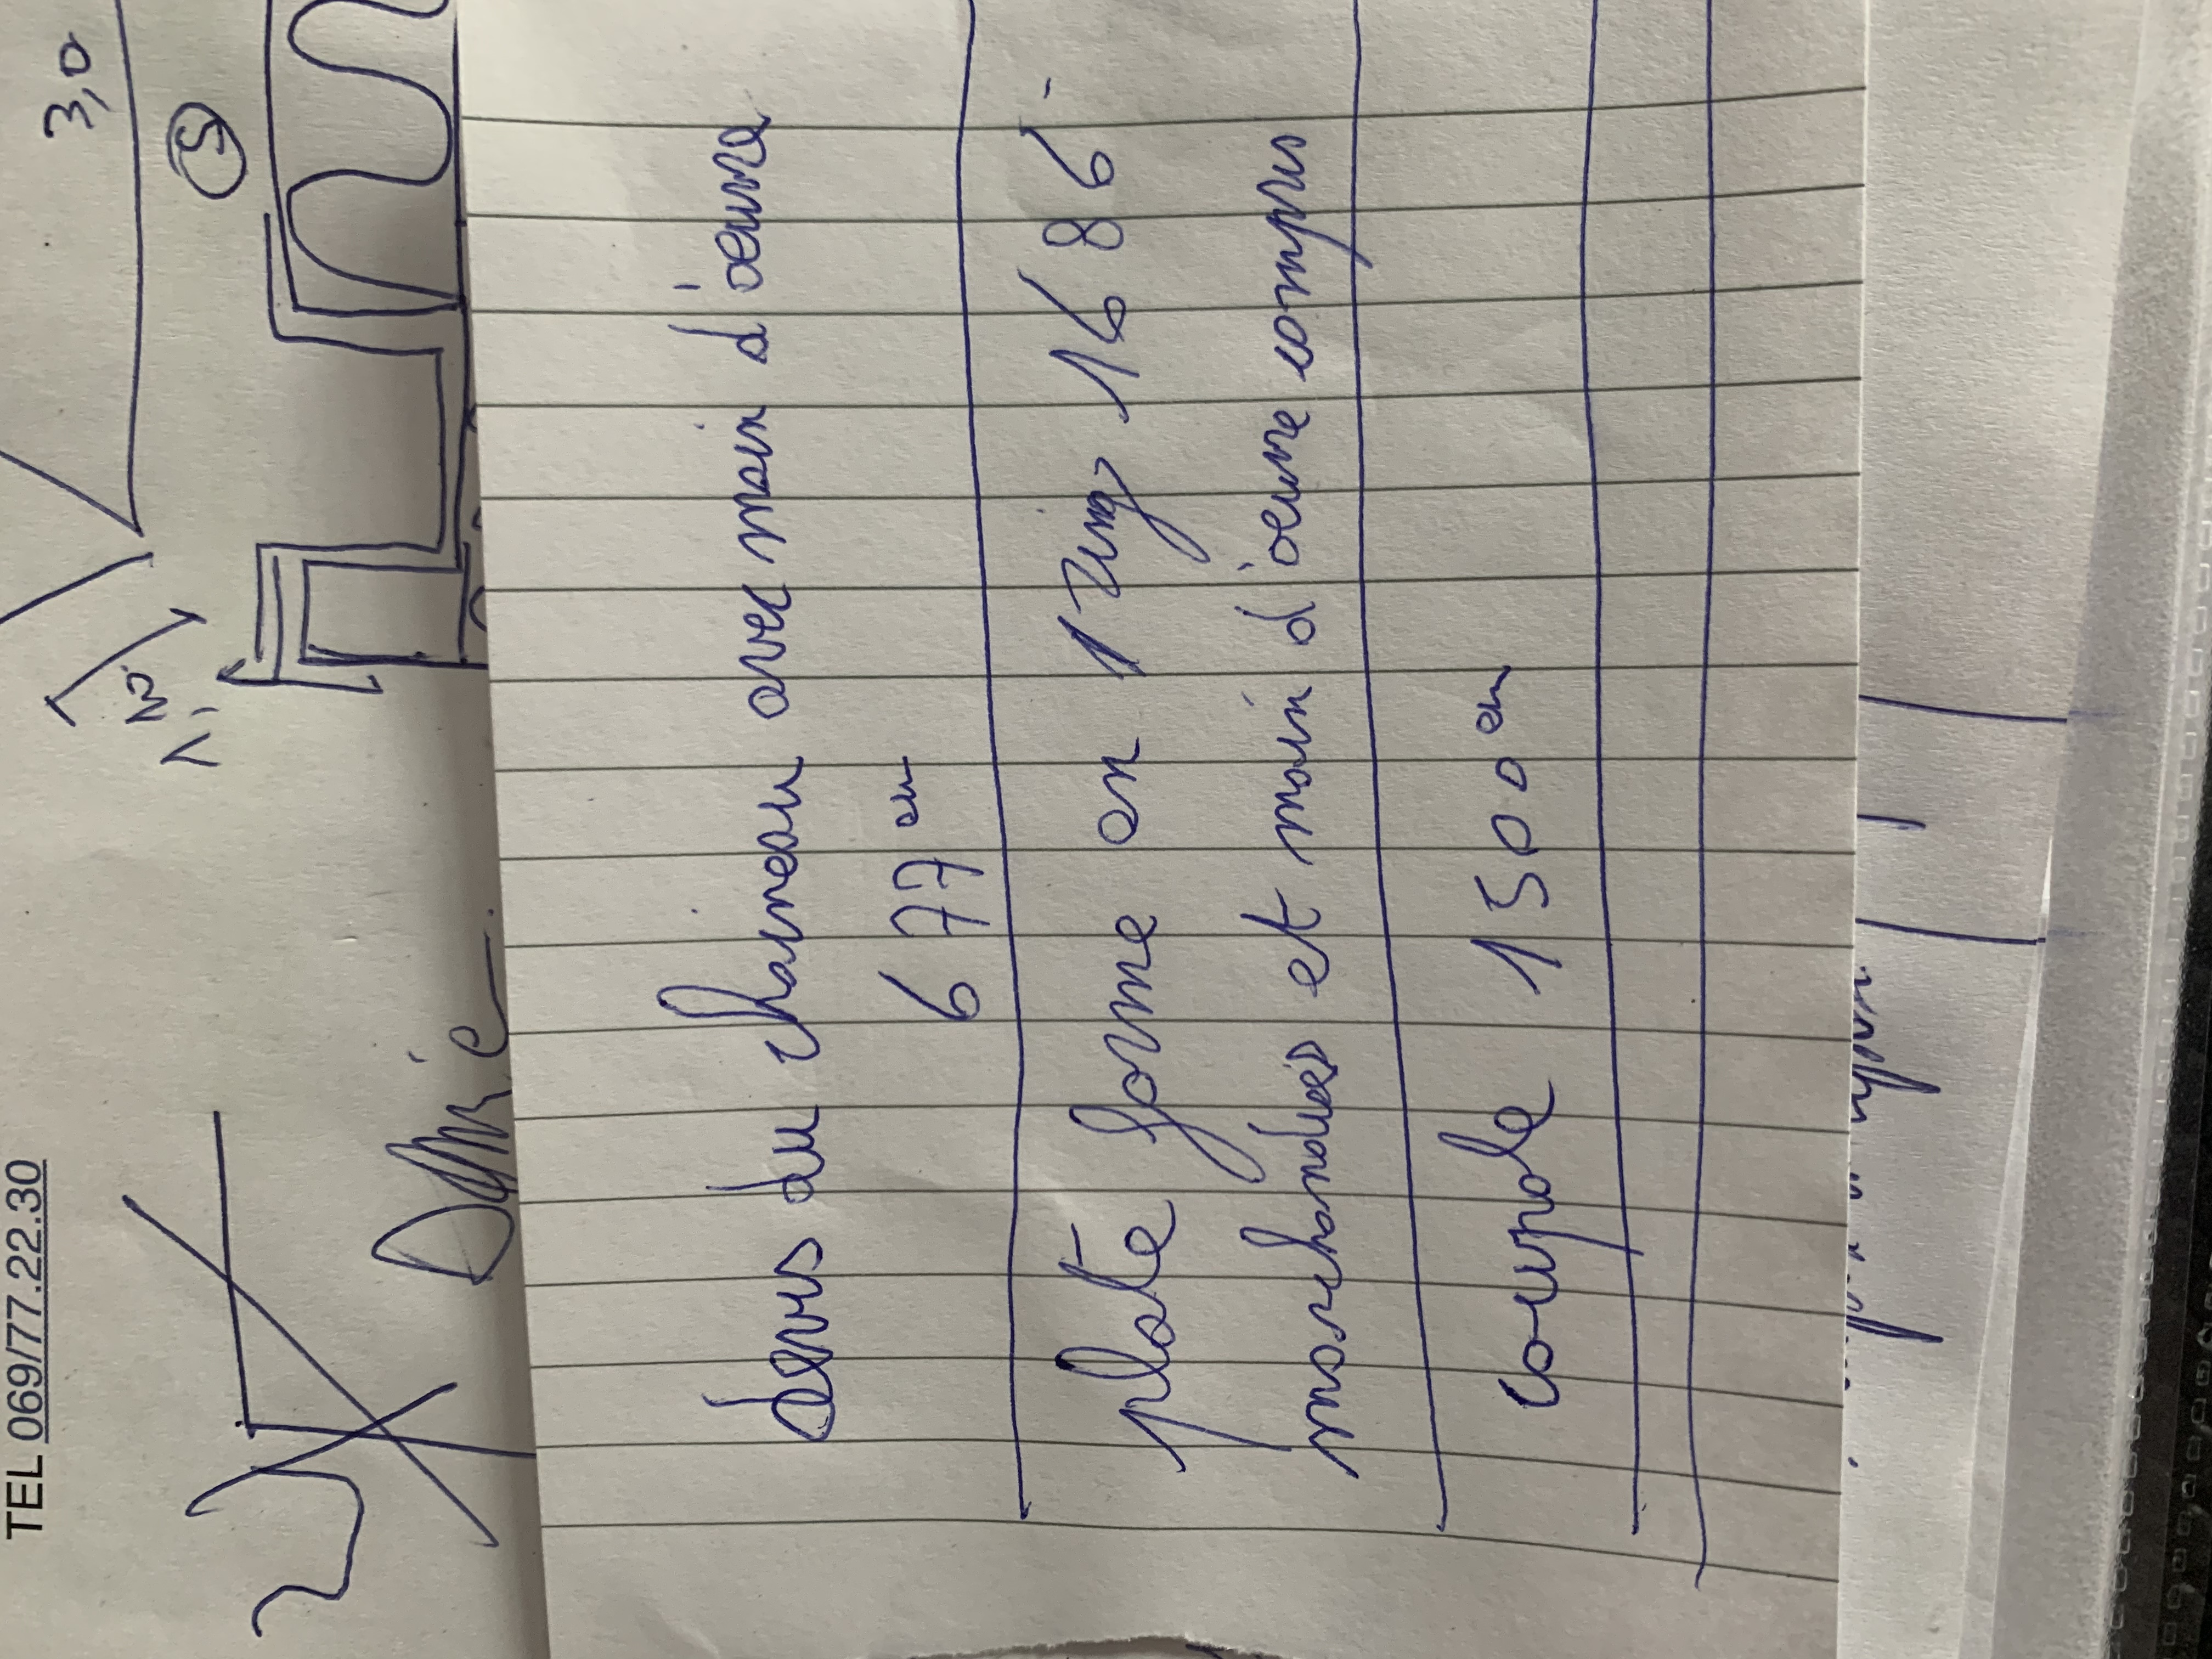 TEL 069/77.22.30
3,0
5
devis du chaineau avec main d'oeuvre
677 eu
plate forme en 1 zing 1686 -
marchandises et main d'oeuvre compris
coupole 1500 eu